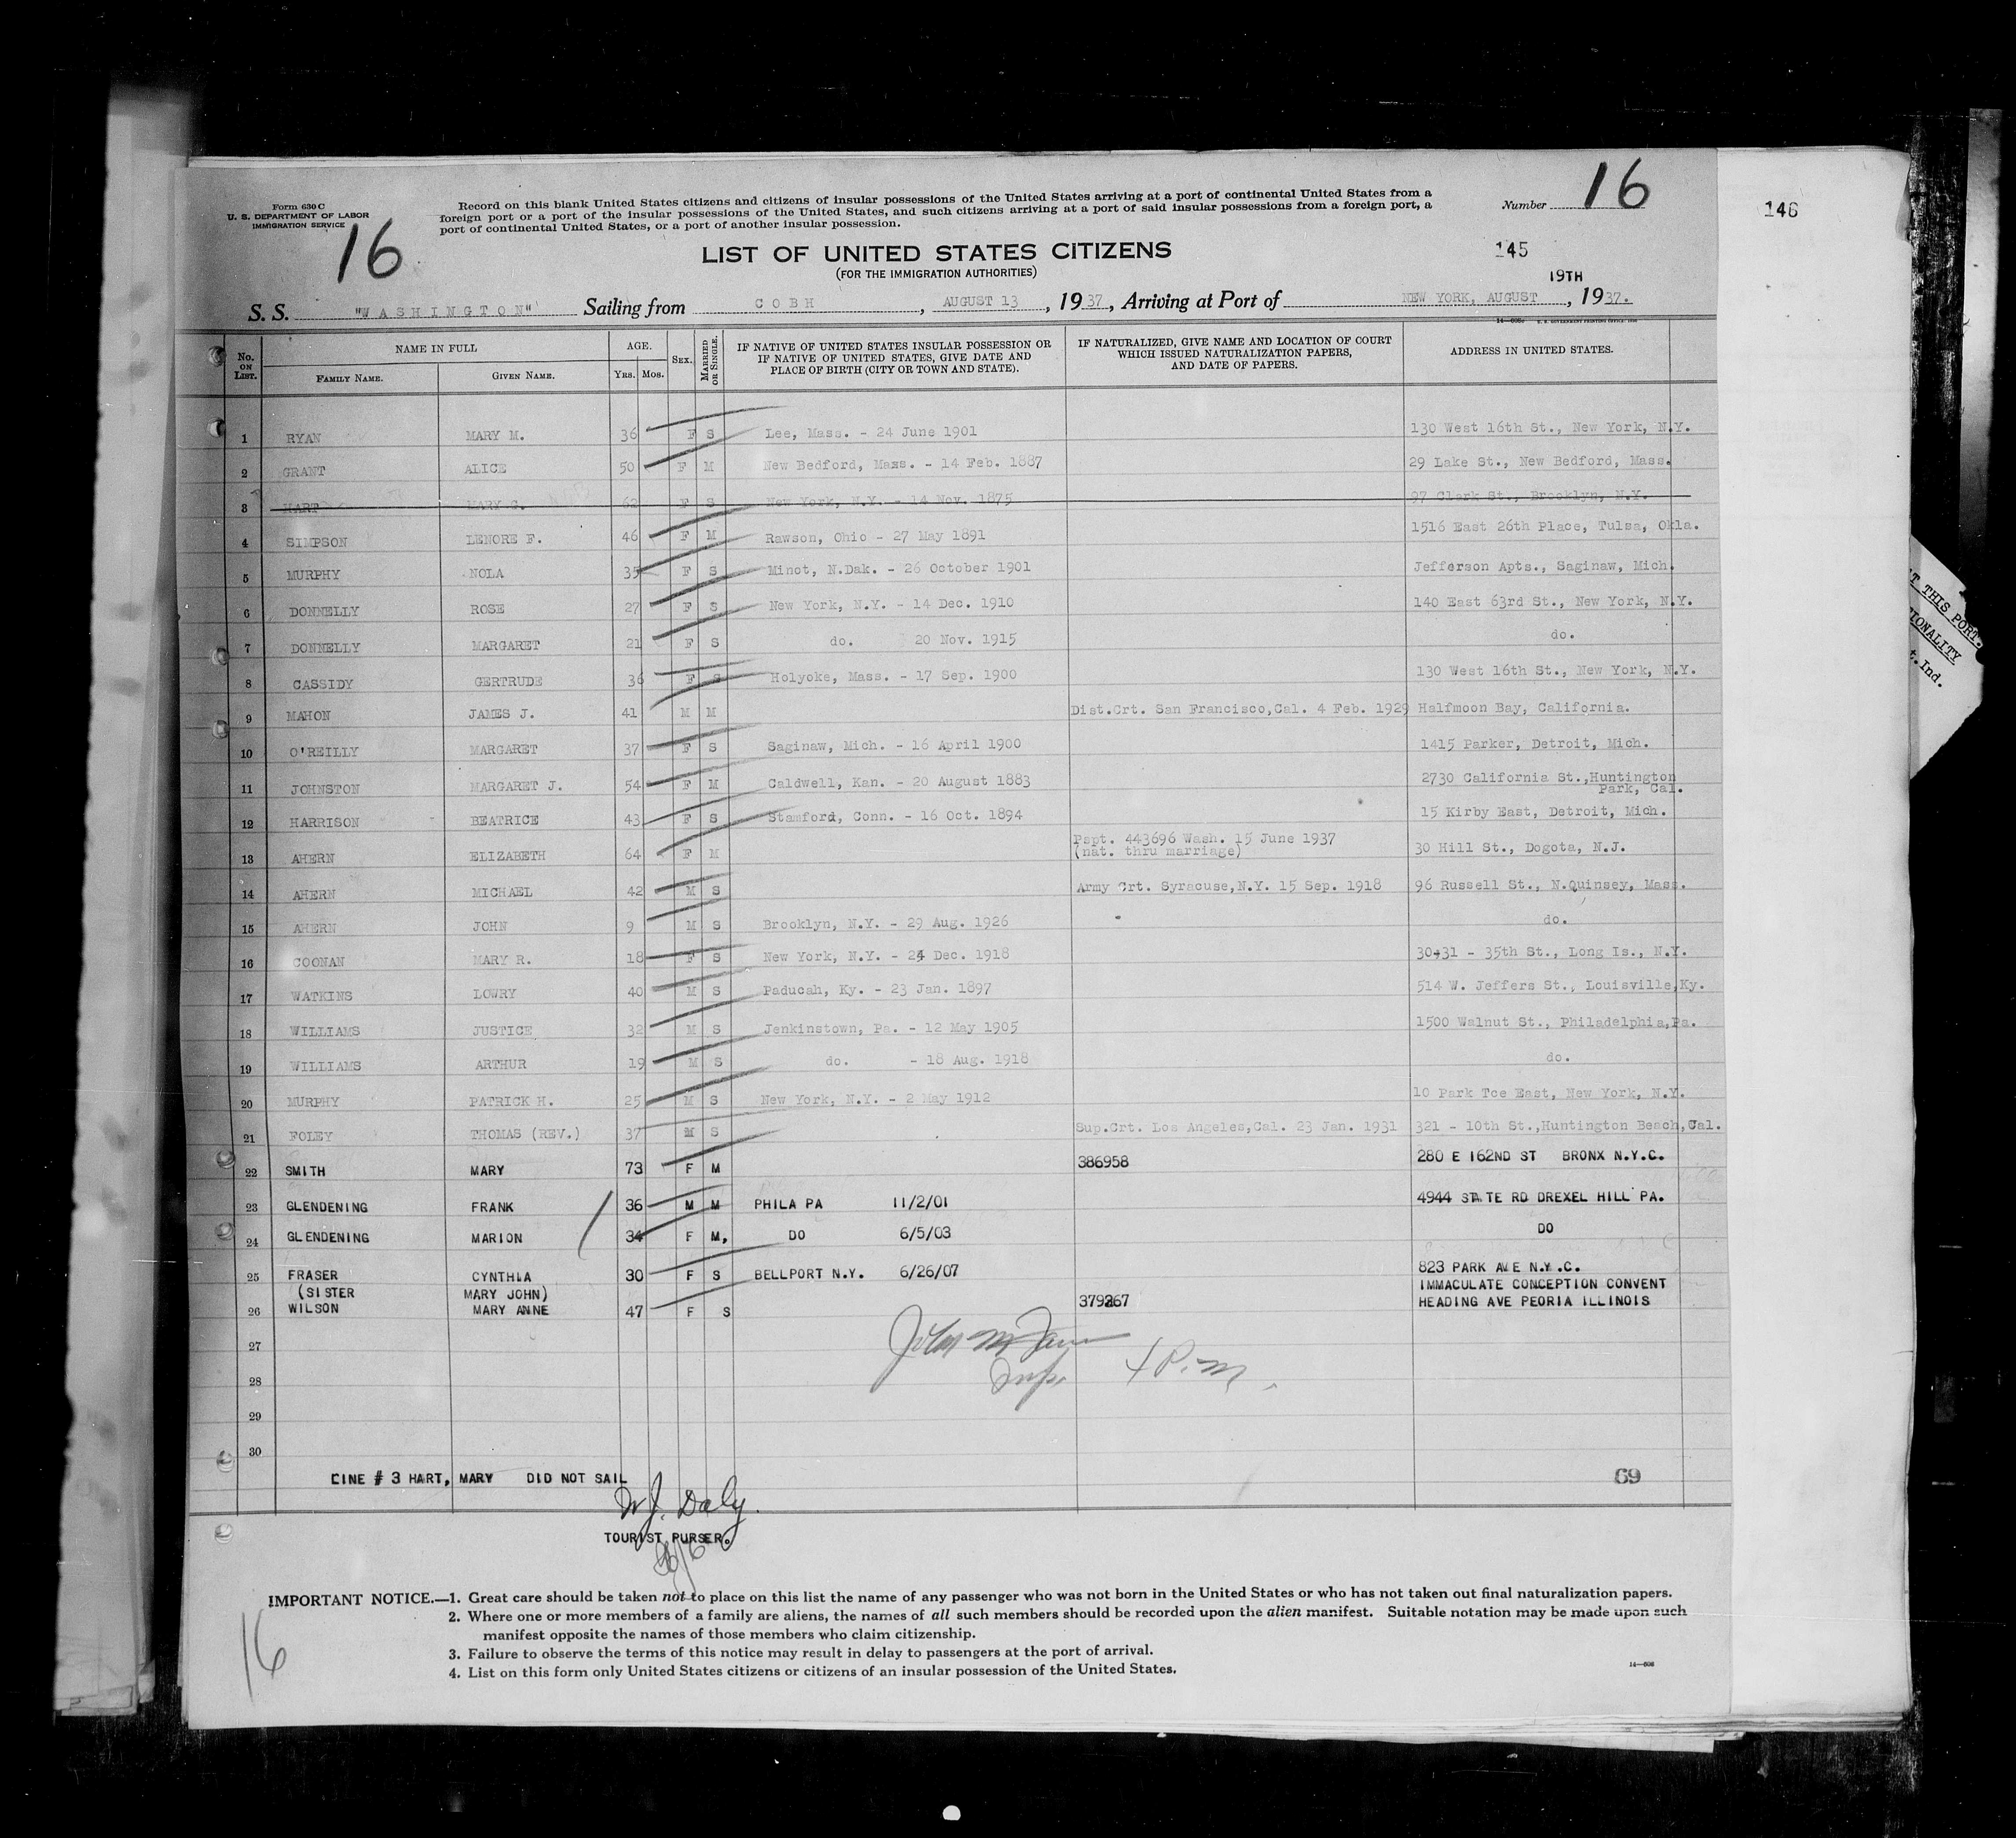 Form 630 C
U. S. DEPARTMENT OF LABOR
IMMIGRATION SERVICE
16
Record on this blank United States citizens and citizens of insular possessions of the United States arriving at a port of continental United States from a
foreign port or a port of the insular possessions of the United States, and such citizens arriving at a port of said insular possessions from a foreign port, a
port of continental United States, or a port of another insular possession.
Number 16
146
LIST OF UNITED STATES CITIZENS
(FOR THE IMMIGRATION AUTHORITIES)
145
19TH
S. S. "WASHINGTON" Sailing from COBH, AUGUST 13, 1937, Arriving at Port of NEW YORK, AUGUST, 1937.
No. ON LIST. NAME IN FULL FAMILY NAME. GIVEN NAME. AGE. YRS. MOS. SEX. MARRIED OR SINGLE. IF NATIVE OF UNITED STATES INSULAR POSSESSION OR IF NATIVE OF UNITED STATES, GIVE DATE AND PLACE OF BIRTH (CITY OR TOWN AND STATE). IF NATURALIZED, GIVE NAME AND LOCATION OF COURT WHICH ISSUED NATURALIZATION PAPERS, AND DATE OF PAPERS. ADDRESS IN UNITED STATES.
1 RYAN MARY M. 36 F S Lee, Mass. - 24 June 1901 130 West 16th St., New York, N.Y.
2 GRANT ALICE 50 F M New Bedford, Mass. - 14 Feb. 1887 29 Lake St., New Bedford, Mass.
3 HART MARY C. 62 F S New York, N.Y. - 14 Nov. 1875 97 Clark St., Brooklyn, N.Y.
4 SIMPSON LENORE F. 46 F M Rawson, Ohio - 27 May 1891 1516 East 26th Place, Tulsa, Okla.
5 MURPHY NOLA 35 F S Minot, N.Dak. - 26 October 1901 Jefferson Apts., Saginaw, Mich.
6 DONNELLY ROSE 27 F S New York, N.Y. - 14 Dec. 1910 140 East 63rd St., New York, N.Y.
7 DONNELLY MARGARET 21 F S do. 20 Nov. 1915 do.
8 CASSIDY GERTRUDE 36 F S Holyoke, Mass. - 17 Sep. 1900 130 West 16th St., New York, N.Y.
9 MAHON JAMES J. 41 M M Dist.Crt. San Francisco,Cal. 4 Feb. 1929 Halfmoon Bay, California.
10 O'REILLY MARGARET 37 F S Saginaw, Mich. - 16 April 1900 1415 Parker, Detroit, Mich.
11 JOHNSTON MARGARET J. 54 F M Caldwell, Kan. - 20 August 1883 2730 California St.,Huntington
Park, Cal.
12 HARRISON BEATRICE 43 F S Stamford, Conn. - 16 Oct. 1894 15 Kirby East, Detroit, Mich.
Pspt. 443696 Wash. 15 June 1937
13 AHERN ELIZABETH 64 F M (nat. thru marriage) 30 Hill St., Dogota, N.J.
14 AHERN MICHAEL 42 M S Army Crt. Syracuse,N.Y. 15 Sep. 1918 96 Russell St., N.Quinsey, Mass.
15 AHERN JOHN 9 M S Brooklyn, N.Y. - 29 Aug. 1926 do.
16 COONAN MARY R. 18 F S New York, N.Y. - 24 Dec. 1918 30-31 - 35th St., Long Is., N.Y.
17 WATKINS LOWRY 40 M S Paducah, Ky. - 23 Jan. 1897 514 W. Jeffers St., Louisville,Ky.
18 WILLIAMS JUSTICE 32 M S Jenkinstown, Pa. - 12 May 1905 1500 Walnut St., Philadelphia,Pa.
19 WILLIAMS ARTHUR 19 M S do. - 18 Aug. 1918 do.
20 MURPHY PATRICK H. 25 M S New York, N.Y. - 2 May 1912 10 Park Tce East, New York, N.Y.
21 FOLEY THOMAS (REV.) 37 M S Sup.Crt. Los Angeles,Cal. 23 Jan. 1931 321 - 10th St.,Huntington Beach,Cal.
22 SMITH MARY 73 F M 386958 280 E 162ND ST BRONX N.Y.C.
23 GLENDENING FRANK 36 M M PHILA PA 11/2/01 4944 STATE RD DREXEL HILL PA.
24 GLENDENING MARION 34 F M, DO 6/5/03 DO
25 FRASER CYNTHIA 30 F S BELLPORT N.Y. 6/26/07 823 PARK AVE N.Y.C.
(SISTER MARY JOHN) IMMACULATE CONCEPTION CONVENT
26 WILSON MARY ANNE 47 F S HEADING AVE PEORIA ILLINOIS
27
28
29
30
LINE # 3 HART, MARY DID NOT SAIL
69
W J. Daly.
TOURIST PURSER.
IMPORTANT NOTICE.—1. Great care should be taken not to place on this list the name of any passenger who was not born in the United States or who has not taken out final naturalization papers.
2. Where one or more members of a family are aliens, the names of all such members should be recorded upon the alien manifest. Suitable notation may be made upon such
manifest opposite the names of those members who claim citizenship.
3. Failure to observe the terms of this notice may result in delay to passengers at the port of arrival.
4. List on this form only United States citizens or citizens of an insular possession of the United States.
16
T THIS PORT.
IONALITY
t. Ind.